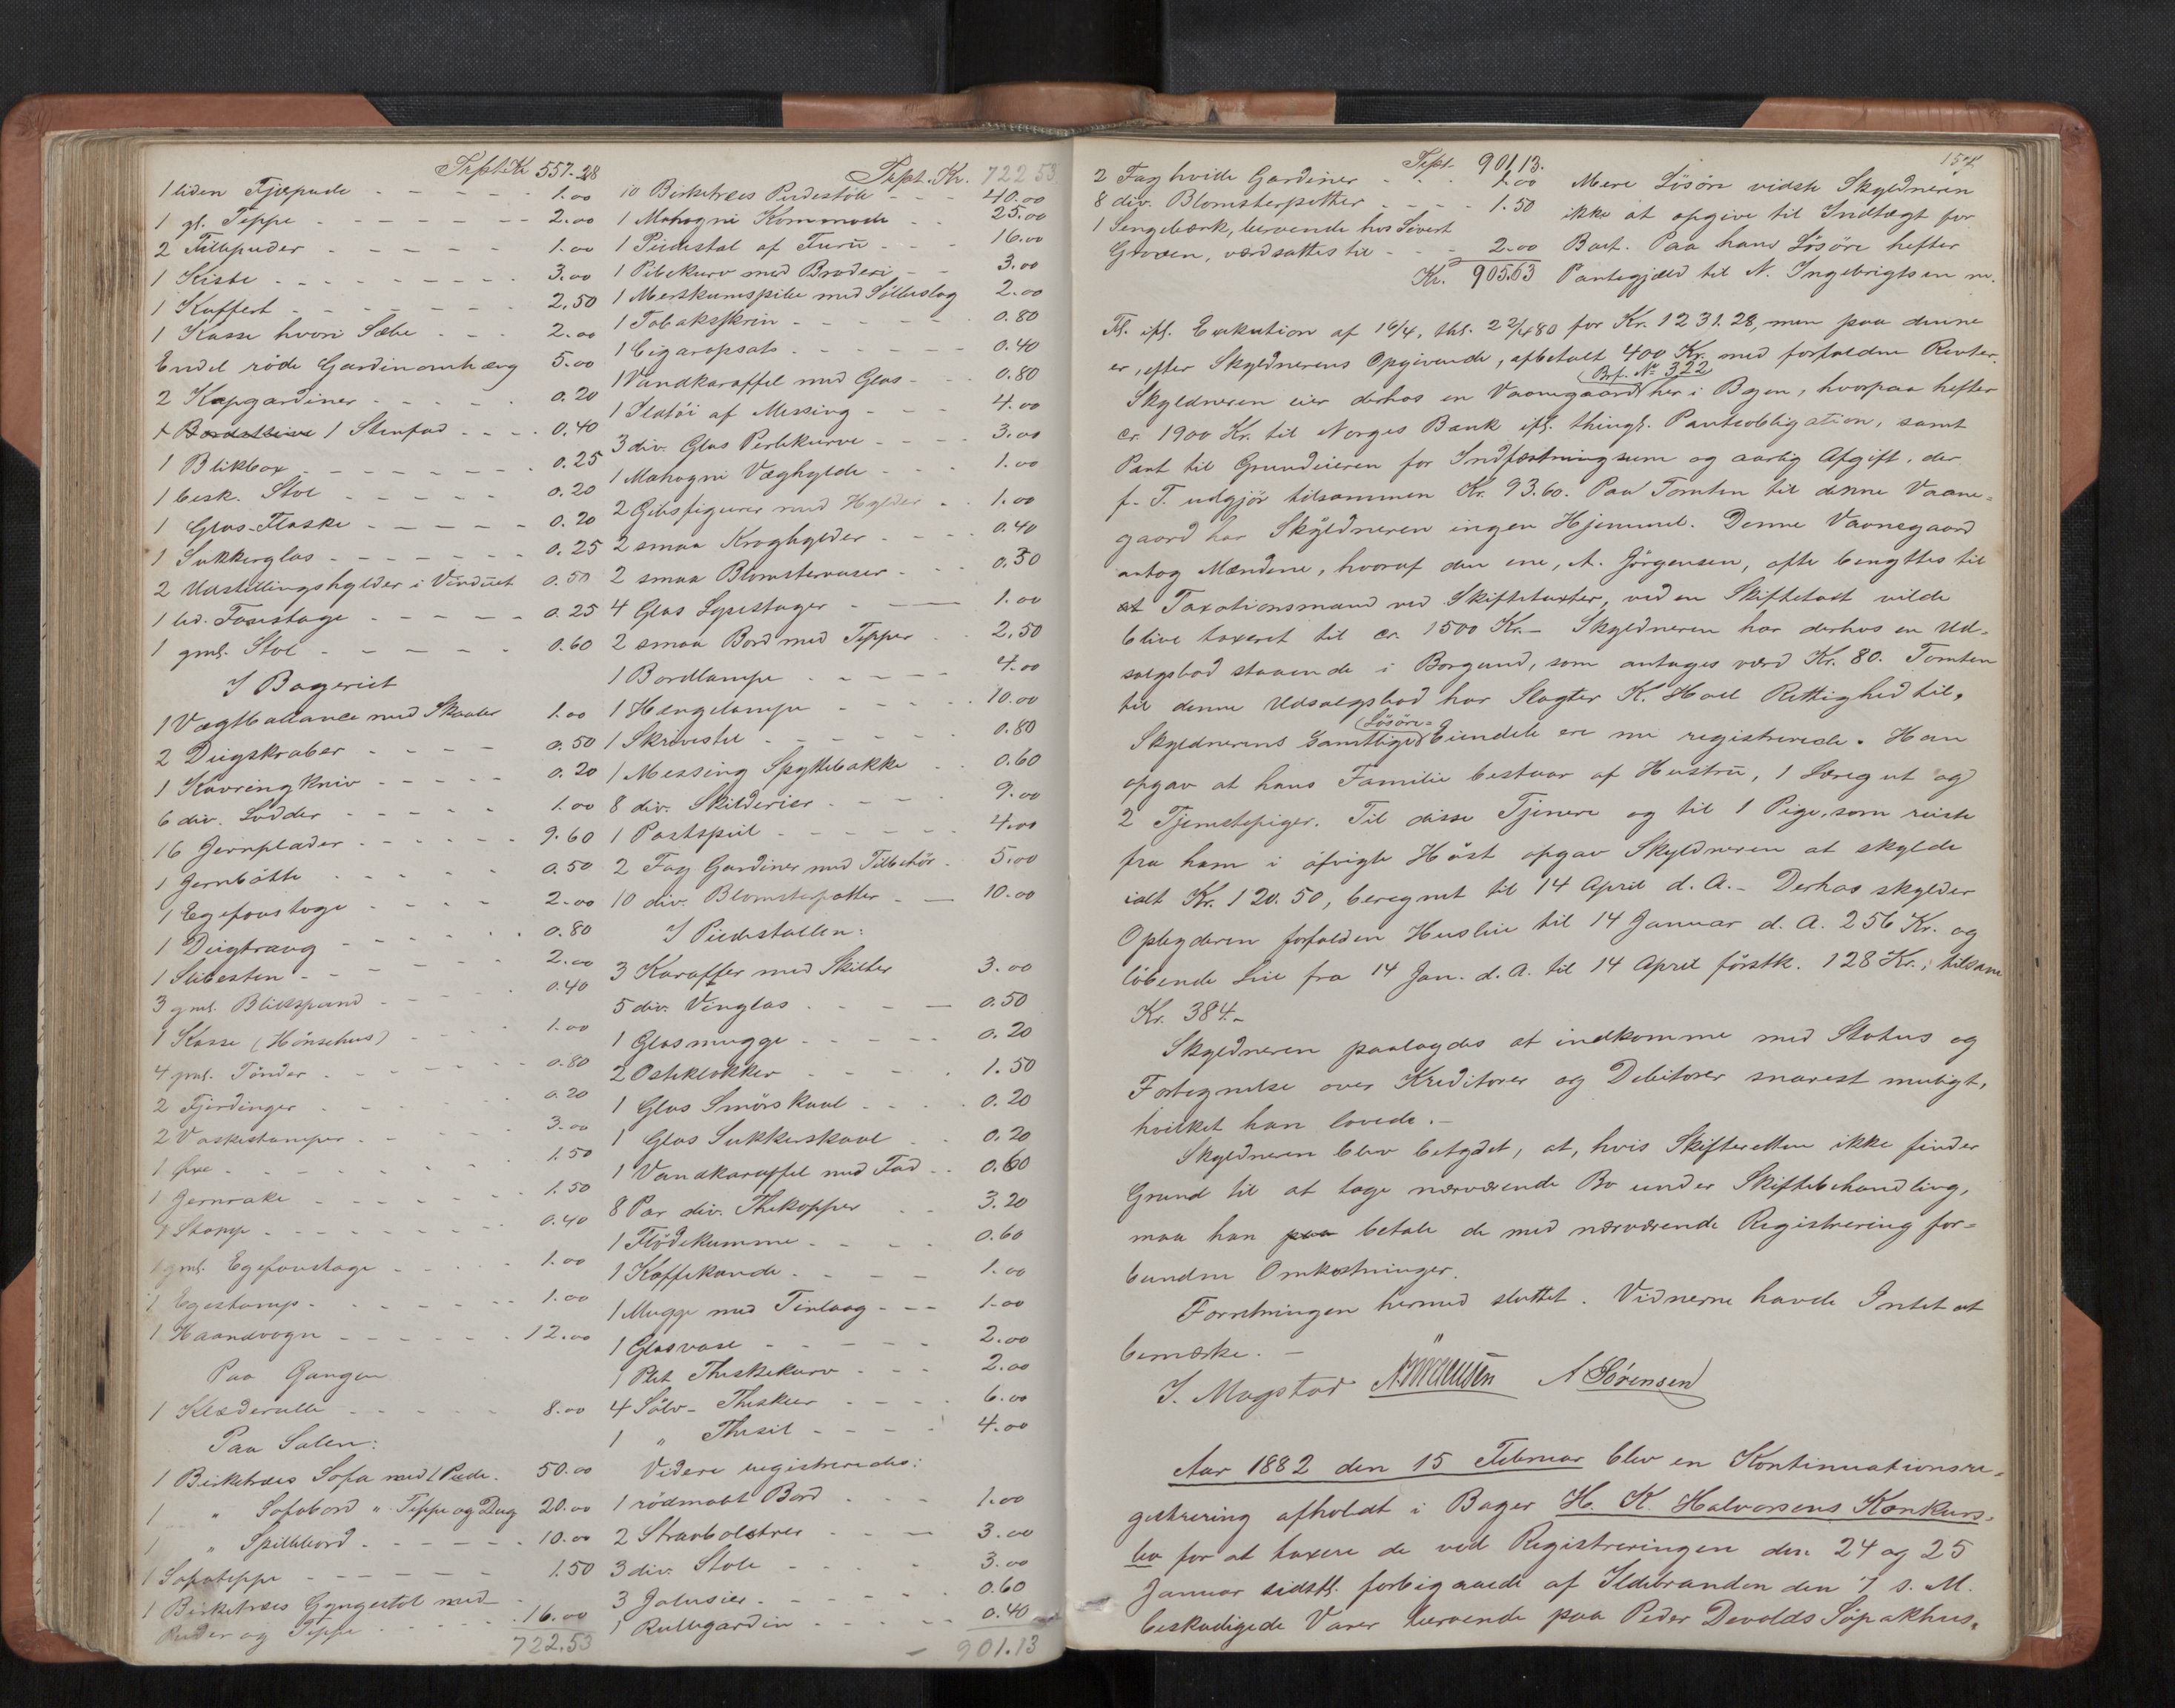 Trspt. Kr. 557.28
1 liden Fjærpude 1.00
1 gl. Teppe 2.00
2 Filtepuder 1.00
1 Kiste 3.00
1 Kuffert 2.50
1 Kasse hvori Sæbe 2.00
Endel røde Gardinomhæng 5.00
2 Kapgardiner 0.20
1 Stenfad 0.40
1 Blikbox 0.25
1 besk. Stol 0.20
1 Glas-Flaske 0.20
1 Sukkerglas 0.25
2 Udstillingshylder i Vinduet 0.50
1 lid. Foustage 0.25
1 gml. Stol 0.60
I Bageriet
1 Vægtballance med Skaaler 1.00
2 Deigskraber 0.50
1 Kavringkniv 0.20
6 div. Lodder 1.00
16 Jernplader 9.60
1 Jernbøtte 0.50
1 Egefoustage 2.00
1 Deigtraug 0.80
1 Slibesten 2.00
3 gml. Blikspand 0.40
1 Kasse (Hönsehus) 1.00
4 gml. Tönder 0.80
2 Fjerdinger 0.20
2 Vaskestamper 3.00
1 Øxe 1.50
1 Jernrake 1.50
1 Stamp 0.40
1 gml. Egefoustage 1.00
1 Egestamp 1.00
1 Haandvogn 12.00
Paa Gangen
1 Klæderulle 8.00
Paa Salen:
1 Birketræes Sofa med 1 Pude 50.00
1 " Sofabord " Teppe og Dug 20.00
1 " Spillebord 10.00
1 Sofateppe 1.50
1 Birketræes Gyngestol med
Puder og Teppe 16.00
722.53
Trspt. Kr. 722.53
10 Birketræes Pudestöle 40.00
1 Mahogni Kommode 25.00
1 Piedestal af Furu 16.00
1 Pibekurv med Broderi 3.00
1 Merskumspibe med Sölbeslag 2.00
1 Tobaksskrin 0.80
1 Cigaropsats 0.40
1 Vandkaraffel med Glas 0.80
1 Ildtöi af Messing 4.00
3 div. Glas Perlekurve 3.00
1 Mahogni Væghylde 1.00
2 Gibsfigurer med Hylder 1.00
2 smaa Kroghylder 0.40
2 smaa Blomstervaser 0.50
4 Glas Lysestager 1.00
2 smaa Bord med Tepper 2.50
1 Bordlampe 4.00
1 Hængelampe 10.00
1 Skrivestel 0.80
1 Messing Spyttebakke 0.60
8 div. Skilderier 9.00
1 Postspeil 4.00
2 Fag Gardiner med Tilbehör 5.00
10 div. Blomsterpotter 10.00
I Piedestallen:
3 Karaffler med Skilter 3.00
5 div. Vinglas 0.50
1 Glasmugge 0.20
2 Osteklokker 1.50
1 Glas Smörskaal 0.20
1 Glas Sukkerskaal 0.20
1 Vandkaraffel med Fad 0.60
8 Par div. Thekopper 3.20
1 Flödekumme 0.60
1 Kaffekande 1.00
1 Mugge med Tinlaag 1.00
1 Glasvase 2.00
1 Plet Theskekurv 2.00
4 Sölv-Theskeer 6.00
1 " Thesil 4.00
Videre registreredes:
1 rödmalt Bord 1.00
2 Straabolstrer 3.00
3 div. Stole 3.00
3 Jalusier 0.60
1 Rullegardin 0.40
901.13
154
Trspt. 901.13.
2 Fag hvide Gardiner 1.00
8 div. Blomsterpotter 1.50
1 Sengebænk, beroende hos Sivert
Groven, værdsattes til 2.00
Kr. 905.63
Mere Lösöre vidste Skyldneren
ikke at opgive til Indtægt for
Boet. Paa hans Lösöre hefter
Pantegjæld til N. Ingebrigtsen m.
Fl. ifl. Exekution af 16/4, thl. 22/4 80 for Kr. 1231.28, men paa denne
er, efter Skyldnerens Opgivende, afbetalt 400 Kr. med forfaldne Renter.
(Brf. No 322)
Skyldneren eier derhos en Vaanegaard her i Byen, hvorpaa hefter
cr. 1900 Kr. til Norges Bank ifl. thingl. Panteobligation, samt
Pant til Grundeieren for Indfæstningssum og aarlig Afgift, der
f. T. udgjör tilsammen Kr. 93.60. Paa Tomten til denne Vaane-
gaard har Skyldneren ingen Hjemmel. Denne Vaanegaard
antog Mændene, hvoraf den ene, A. Jörgensen, ofte benyttes til
Taxationsmand ved Skiftetaxter, ved en Skiftetaxt vilde
blive taxeret til cr. 1500 Kr.- Skyldneren har derhos en Ud-
salgsbod staaende i Borgund, som antages værd Kr. 80. Tomten
til denne Udsalgsbod har Slagter K. Hoel Rettighed til.
(Lösöre-
Skyldnerens samtlige Eiendele ere nu registrerede. Han
opgav at hans Familie bestaar af Hustru, 1 Læregut og
2 Tjenstepiger. Til disse Tjenere og til 1 Pige, som reiste
fra ham i afvigte Höst opgav Skyldneren at skylde
ialt Kr. 120.50, beregnet til 14 April d. A.- Derhos skylder
Opbyderen forfalden Husleie til 14 Januar d. A. 256 Kr. og
löbende Leie fra 14 Jan. d. A. til 14 April förstk. 128 Kr.; tilsam
Kr. 384.-
Skyldneren paalagdes at indkomme med Status og
Fortegnelse over Kreditorer og Debitorer snarest muligt,
hvilket han lovede.-
Skyldneren blev betydet, at, hvis Skifteretten ikke finder
Grund til at tage nærværende Bo under Skiftebehandling,
maa han paa betale de med nærværende Registrering for-
bundne Omkostninger.
Forretningen hermed sluttet. Vidnerne havde Intet at
bemærke. -
J. Magstad A Sörensen
Aar 1882 den 15 Februar blev en Kontinuationsre-
gistrering afholdt i Bager H. K. Halvorsens Konkurs-
bo for at taxere de ved Registreringen den 24 og 25
Januar sidstl. forbigaaede af Ildebranden den 7 s. M.
beskadigede Varer beroende paa Peder Devolds Söpakhus.